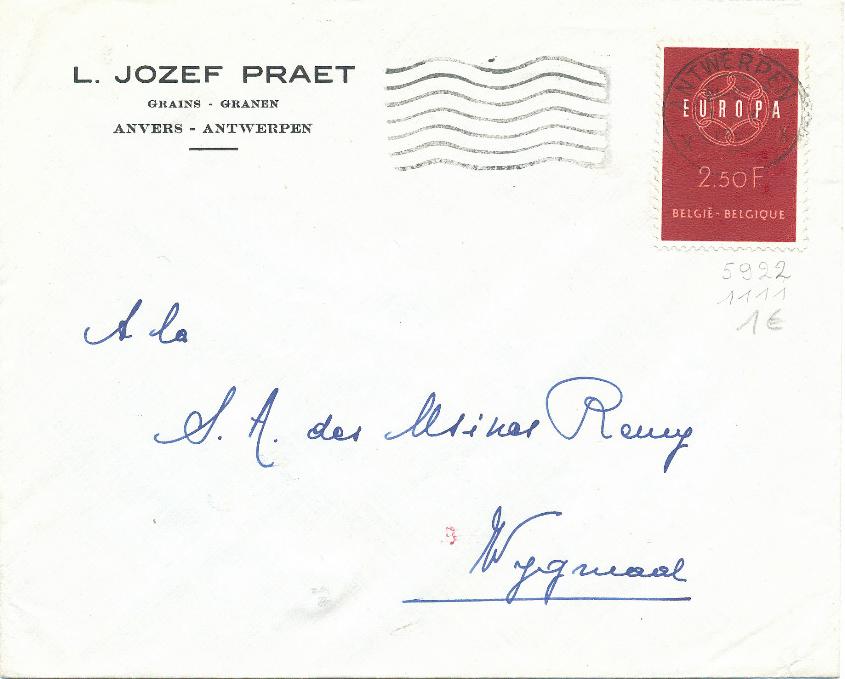 L. JOZEF PRAET
GRAINS - GRANEN
ANVERS - ANTWERPEN
ANTWERPEN
EUROPA
2.50 F
BELGIË - BELGIQUE
5922
1111
1 €
A la
S. A. des Usines Remy
Wygmaal